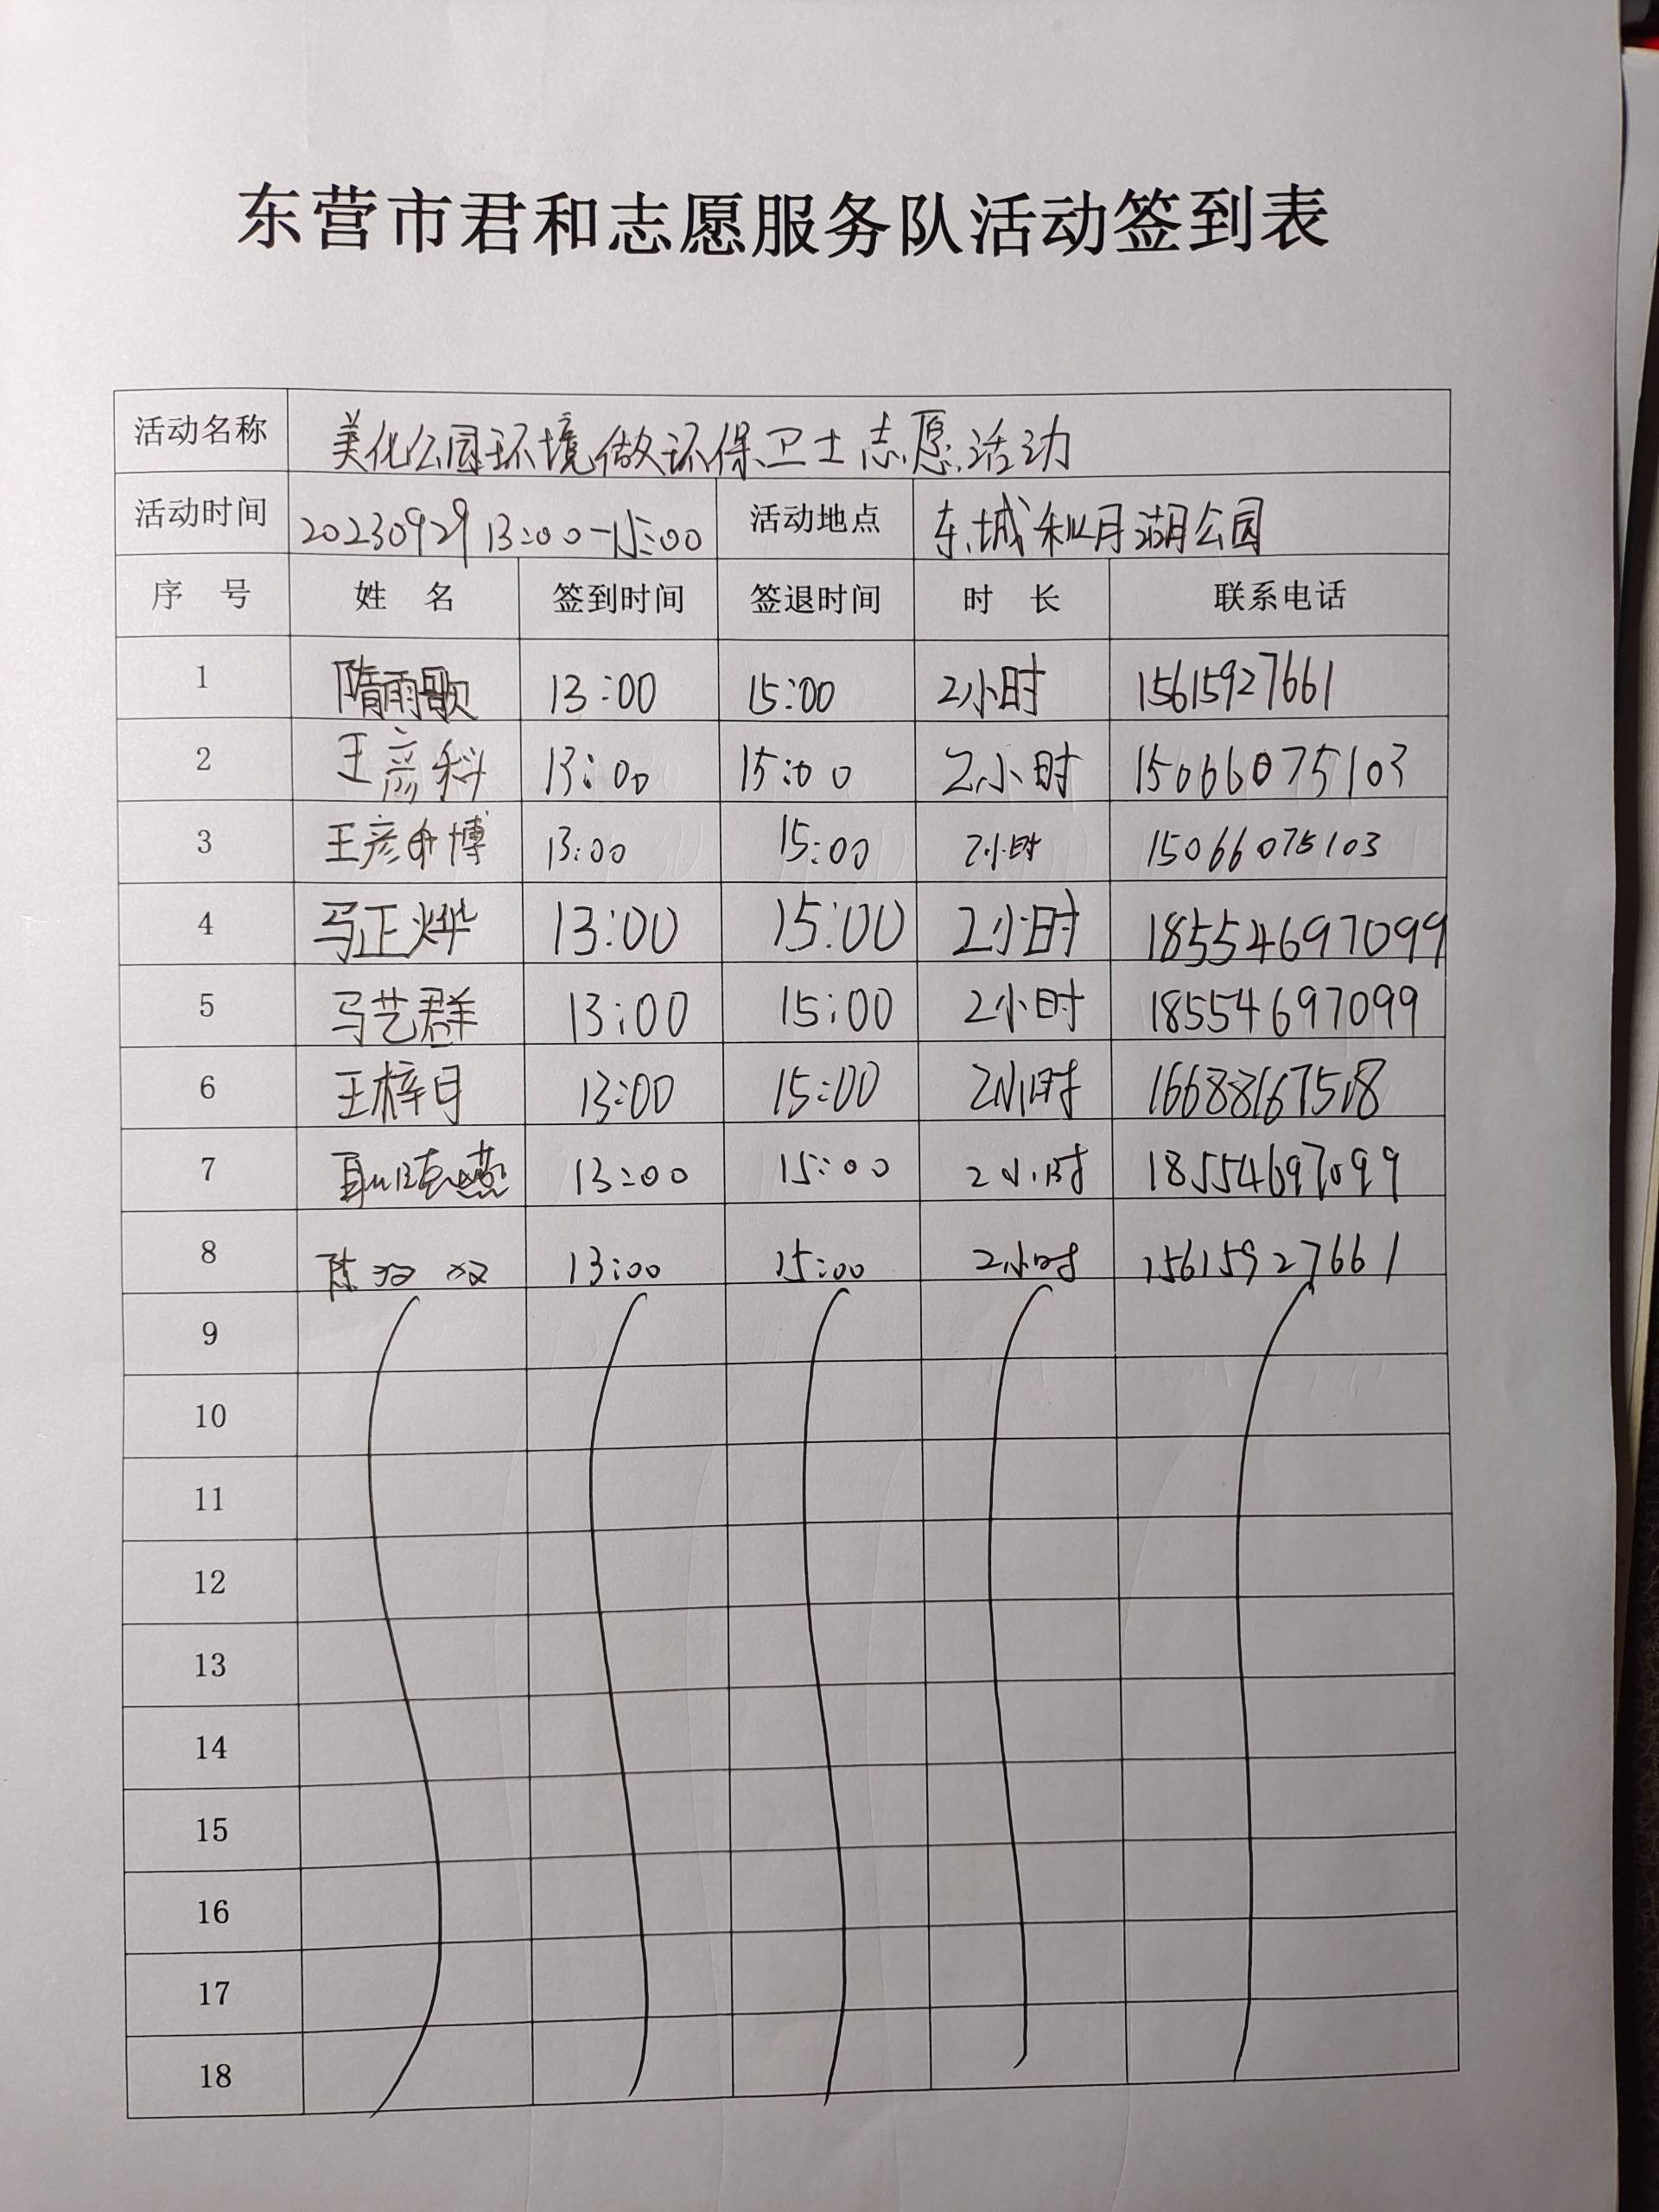 东营市君和志愿服务队活动签到表
活动名称 美化公园环境做环保卫士志愿活动
活动时间 20230929 13:00-15:00 活动地点 东城秋月湖公园
序 号 姓 名 签到时间 签退时间 时 长 联系电话
1 隋雨歌 13:00 15:00 2小时 15615927661
2 王彦科 13:00 15:00 2小时 15066075103
3 王彦博 13:00 15:00 2小时 15066075103
4 马正烨 13:00 15:00 2小时 18554697099
5 马艺群 13:00 15:00 2小时 18554697099
6 王梓月 13:00 15:00 2小时 16688167518
7 13:00 15:00 2小时 18554697099
8 陈双双 13:00 15:00 2小时 15615927661
9
10
11
12
13
14
15
16
17
18